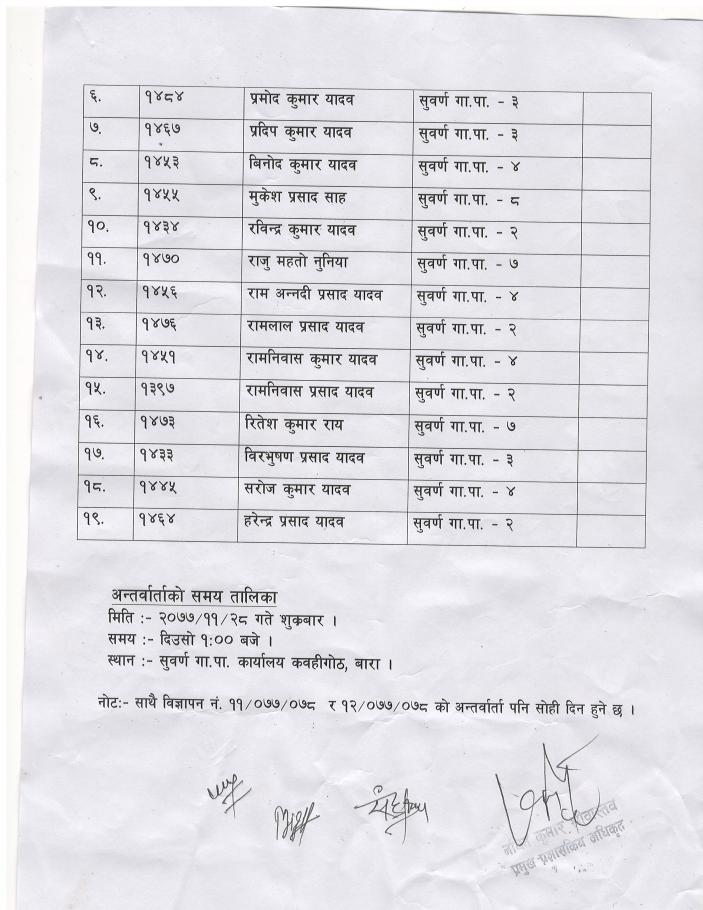 ६. १४८४ प्रमोद कुमार यादव सुवर्ण गा.पा. - ३
७. १४६७ प्रदिप कुमार यादव सुवर्ण गा.पा. - ३
८. १४५३ बिनोद कुमार यादव सुवर्ण गा.पा. - ४
९. १४५५ मुकेश प्रसाद साह सुवर्ण गा.पा. - ८
१०. १४३४ रविन्द्र कुमार यादव सुवर्ण गा.पा. - २
११. १४७० राजु महतो नुनिया सुवर्ण गा.पा. - ७
१२. १४५६ राम अन्नदी प्रसाद यादव सुवर्ण गा.पा. - ४
१३. १४७६ रामलाल प्रसाद यादव सुवर्ण गा.पा. - २
१४. १४५१ रामनिवास कुमार यादव सुवर्ण गा.पा. - ४
१५. १३९७ रामनिवास प्रसाद यादव सुवर्ण गा.पा. - २
१६. १४७३ रितेश कुमार राय सुवर्ण गा.पा. - ७
१७. १४३३ विरभुषण प्रसाद यादव सुवर्ण गा.पा. - ३
१८. १४४५ सरोज कुमार यादव सुवर्ण गा.पा. - ४
१९. १४६४ हरेन्द्र प्रसाद यादव सुवर्ण गा.पा. - २
अन्तर्वार्ताको समय तालिका
मिति :- २०७७/११/२८ गते शुक्रबार ।
समय :- दिउसो १:०० बजे ।
स्थान :- सुवर्ण गा.पा. कार्यालय कवहीगोठ, बारा ।
नोट:- साथै विज्ञापन नं. ११/०७७/०७८ र १२/०७७/०७८ को अन्तर्वार्ता पनि सोही दिन हुने छ ।
कुमार
प्रमुख प्रशासकिय अधिकृत